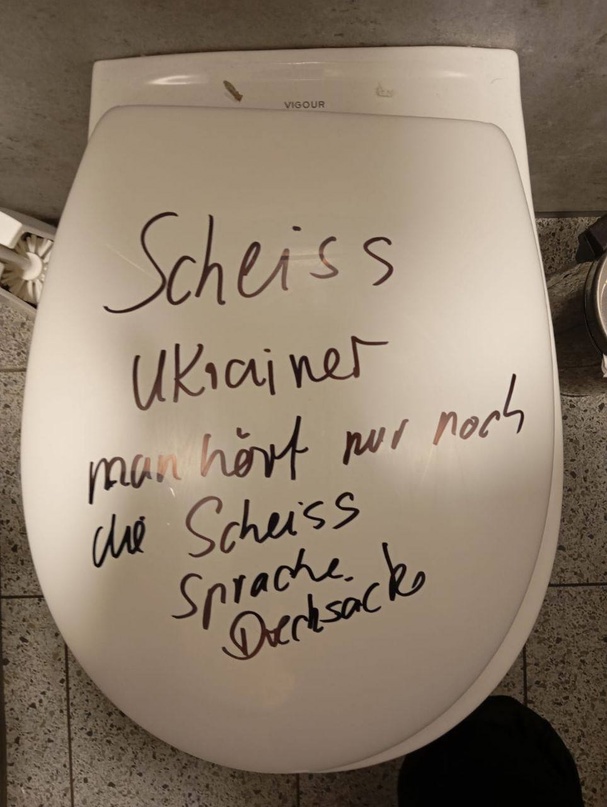 VIGOUR
Scheiss
Ukrainer
man hört nur noch
die Scheiss
Sprache.
Drecksacke